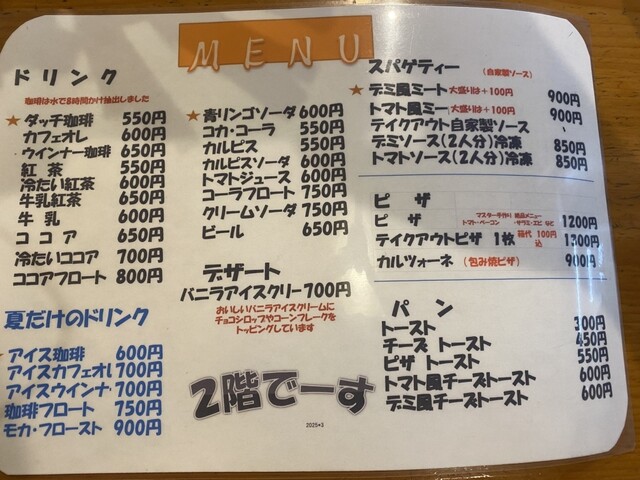 MENU
ドリンク
珈琲は水で8時間かけ抽出しました
★ダッチ珈琲 550円
カフェオレ 600円
ウインナー珈琲 650円
紅茶 550円
冷たい紅茶 600円
牛乳紅茶 650円
牛乳 600円
ココア 650円
冷たいココア 700円
ココアフロート 800円
夏だけのドリンク
アイス珈琲 600円
アイスカフェオレ 700円
アイスウインナ 700円
珈琲フロート 750円
モカ・フロースト 900円
★青リンゴソーダ 600円
コカ・コーラ 550円
カルピス 550円
カルピスソーダ 600円
トマトジュース 600円
コーラフロート 750円
クリームソーダ 750円
ビール 650円
デザート
バニラアイスクリー 700円
おいしいバニラアイスクリームに
チョコシロップやコーンフレークを
トッピングしています
2階でーす
2025*3
スパゲティー (自家製ソース)
★デミ風ミート 大盛りは+100円 900円
トマト風ミート 大盛りは+100円 900円
テイクアウト自家製ソース
デミソース(2人分)冷凍 850円
トマトソース(2人分)冷凍 850円
ピザ
マスター手作り 絶品メニュー
ピザ トマト・ベーコン ・サラミ・エビ など 1200円
テイクアウトピザ 1枚 箱代 100円込 1300円
カルツォーネ (包み焼ピザ) 900円
パン
トースト 300円
チーズトースト 450円
ピザトースト 550円
トマト風チーズトースト 600円
デミ風チーズトースト 600円